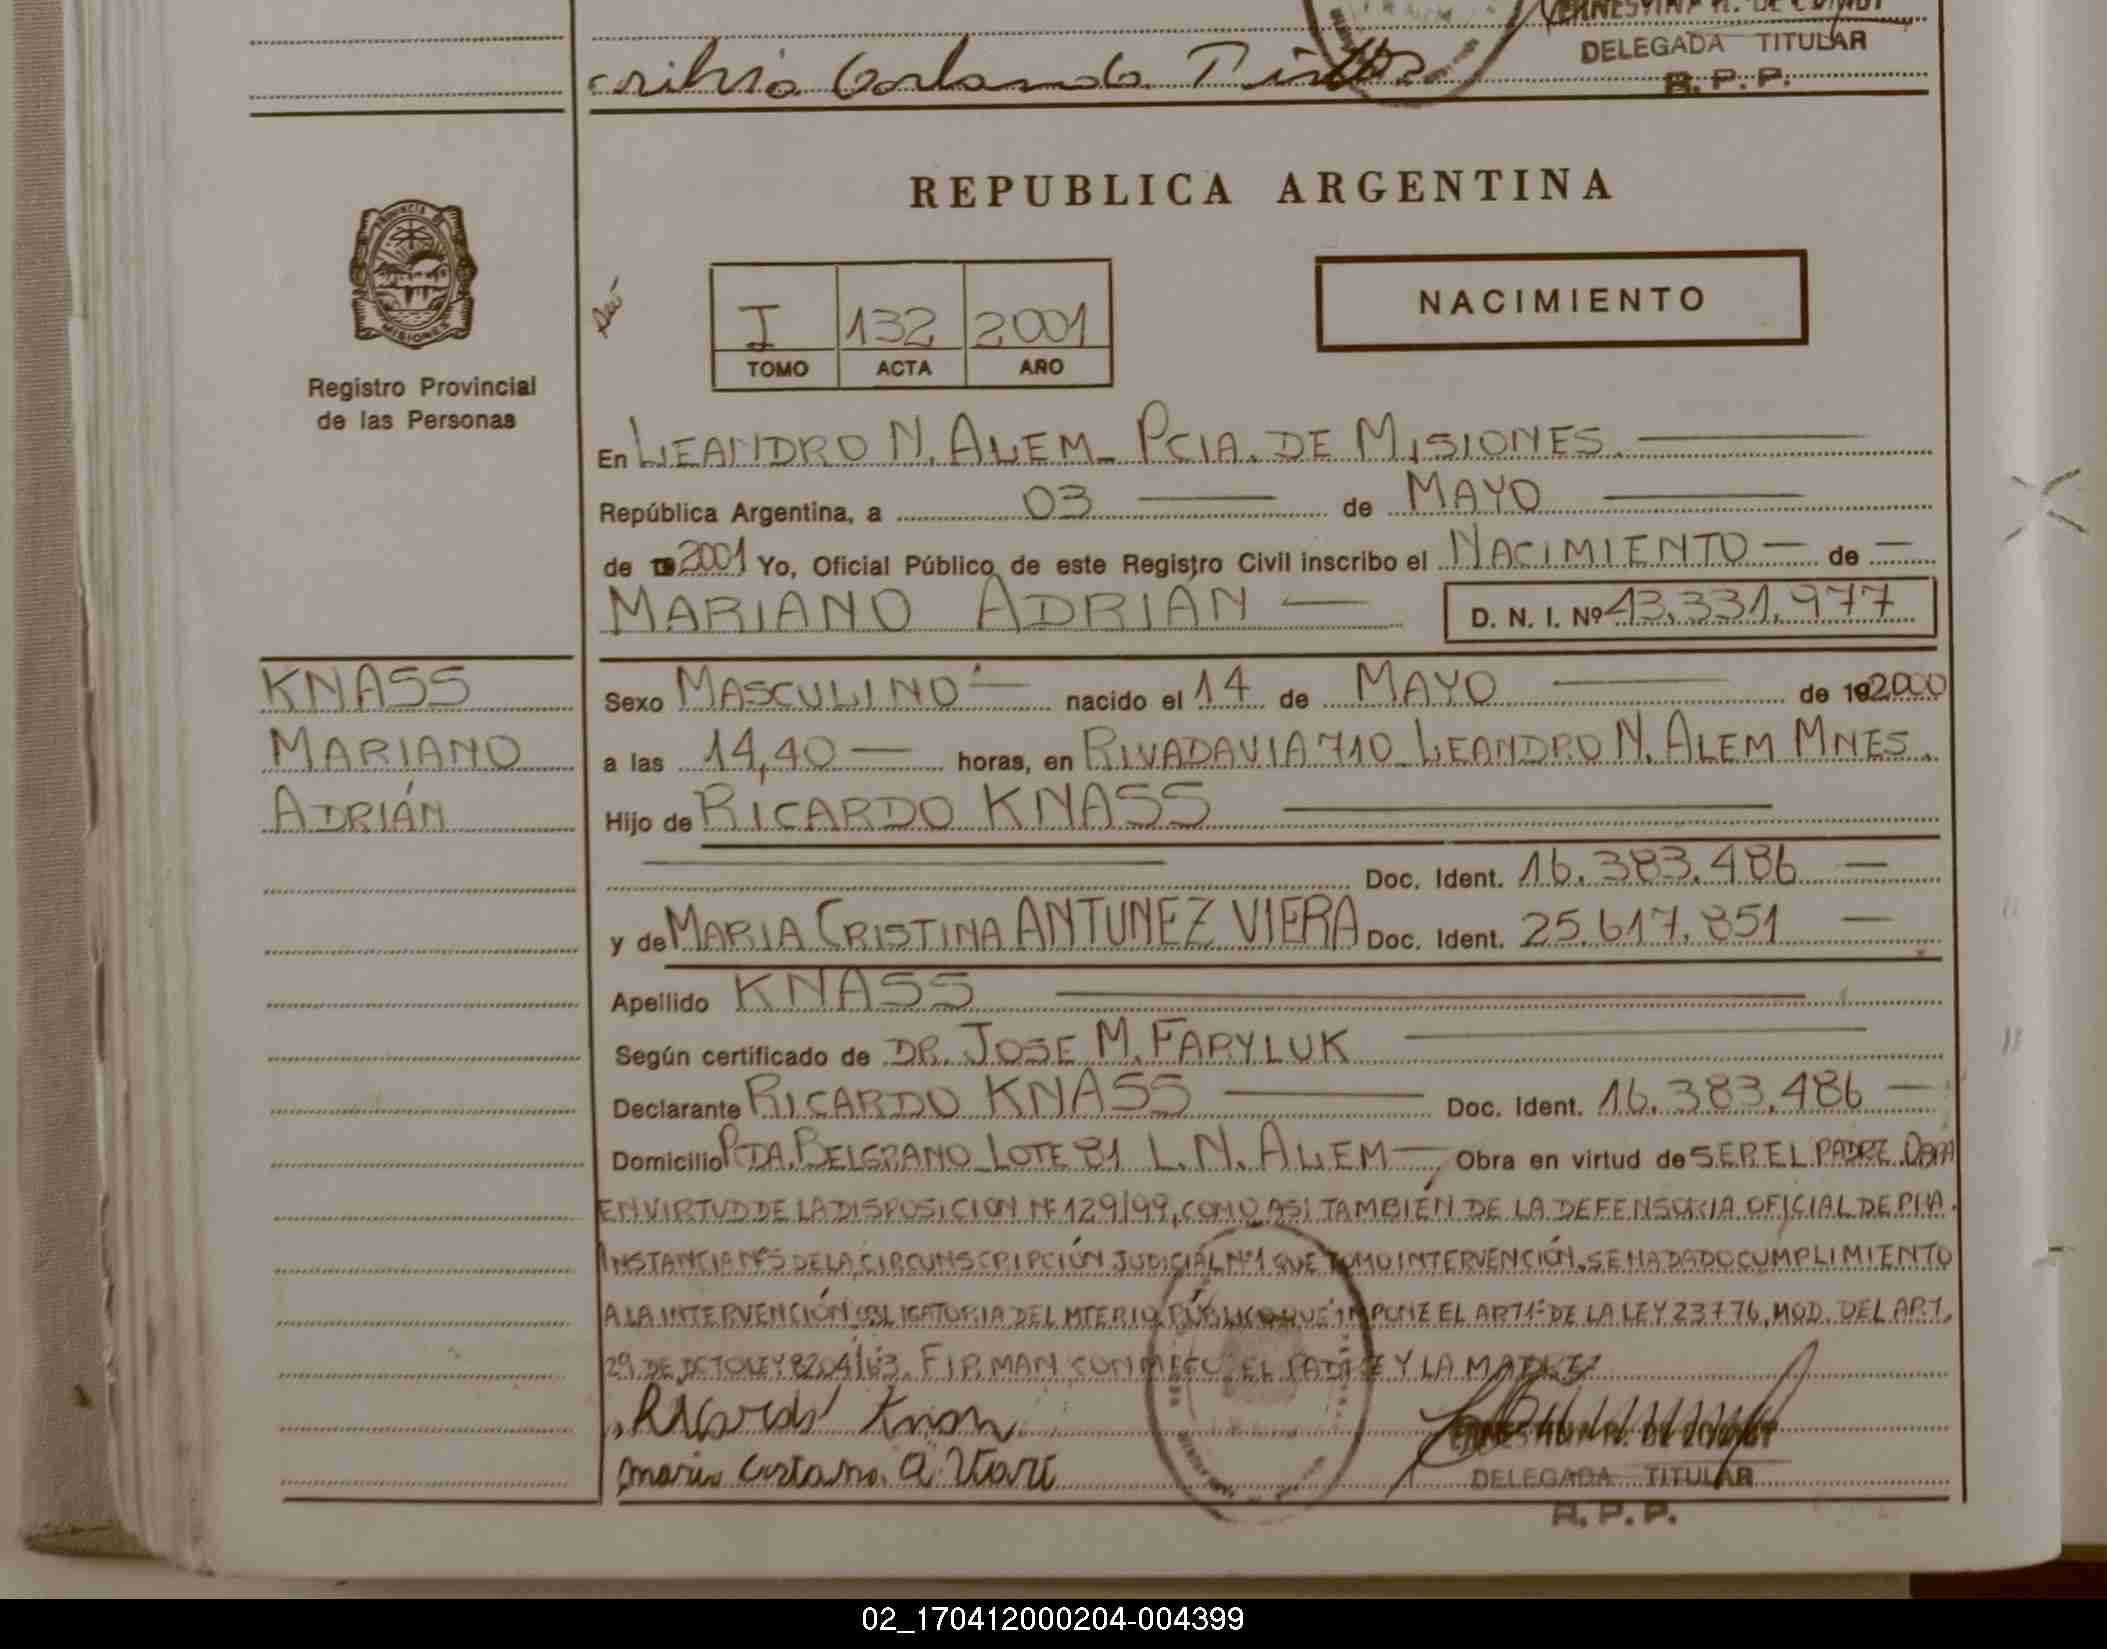 DELEGADA TITULAR
R. P. P.
REPUBLICA ARGENTINA
PROVINCIA DE
MISIONES
Registro Provincial
de las Personas
I 132 2001
TOMO ACTA AÑO
NACIMIENTO
En LEANDRO N. ALEM - PCIA. DE MISIONES.
República Argentina, a 03 de MAYO
de 2001 Yo, Oficial Público de este Registro Civil inscribo el NACIMIENTO — de —
MARIANO ADRIÁN — D. N. I. Nº 43.331.977
KNASS
MARIANO
ADRIÁN
Sexo MASCULINO — nacido el 14 de MAYO — de 192000
a las 14,40 — horas, en RIVADAVIA 710 - LEANDRO N. ALEM MNES.
Hijo de RICARDO KNASS
Doc. Ident. 16.383.486 —
y de MARIA CRISTINA ANTUNEZ VIERA Doc. Ident. 25.617.851 —
Apellido KNASS
Según certificado de DR. JOSE M. FARYLUK
Declarante RICARDO KNASS — Doc. Ident. 16.383.486 —
Domicilio PTDA. BELGRANO - LOTE 81 L. N. ALEM — Obra en virtud de SER EL PADRE. OBRA
EN VIRTUD DE LA DISPOSICION Nº 129/99, COMO ASI TAMBIÉN DE LA DEFENSORIA OFICIAL DE
INSTANCIA Nº 5 DE LA CIRCUNSCRIPCIÓN JUDICIAL Nº 1 QUE TOMO INTERVENCIÓN. SE HA DADO CUMPLIMIENTO
A LA INTERVENCIÓN OBLIGATORIA DEL MTERIO PÚBLICO QUE IMPONE EL ART 1º DE LA LEY 23776, MOD. DEL ART.
29 DE DCTO LEY 8204/63. FIRMAN CONMIGO: EL PADRE Y LA MADRE
Ricardo Knass
DELEGADA TITULAR
R. P. P.
02_170412000204-004399